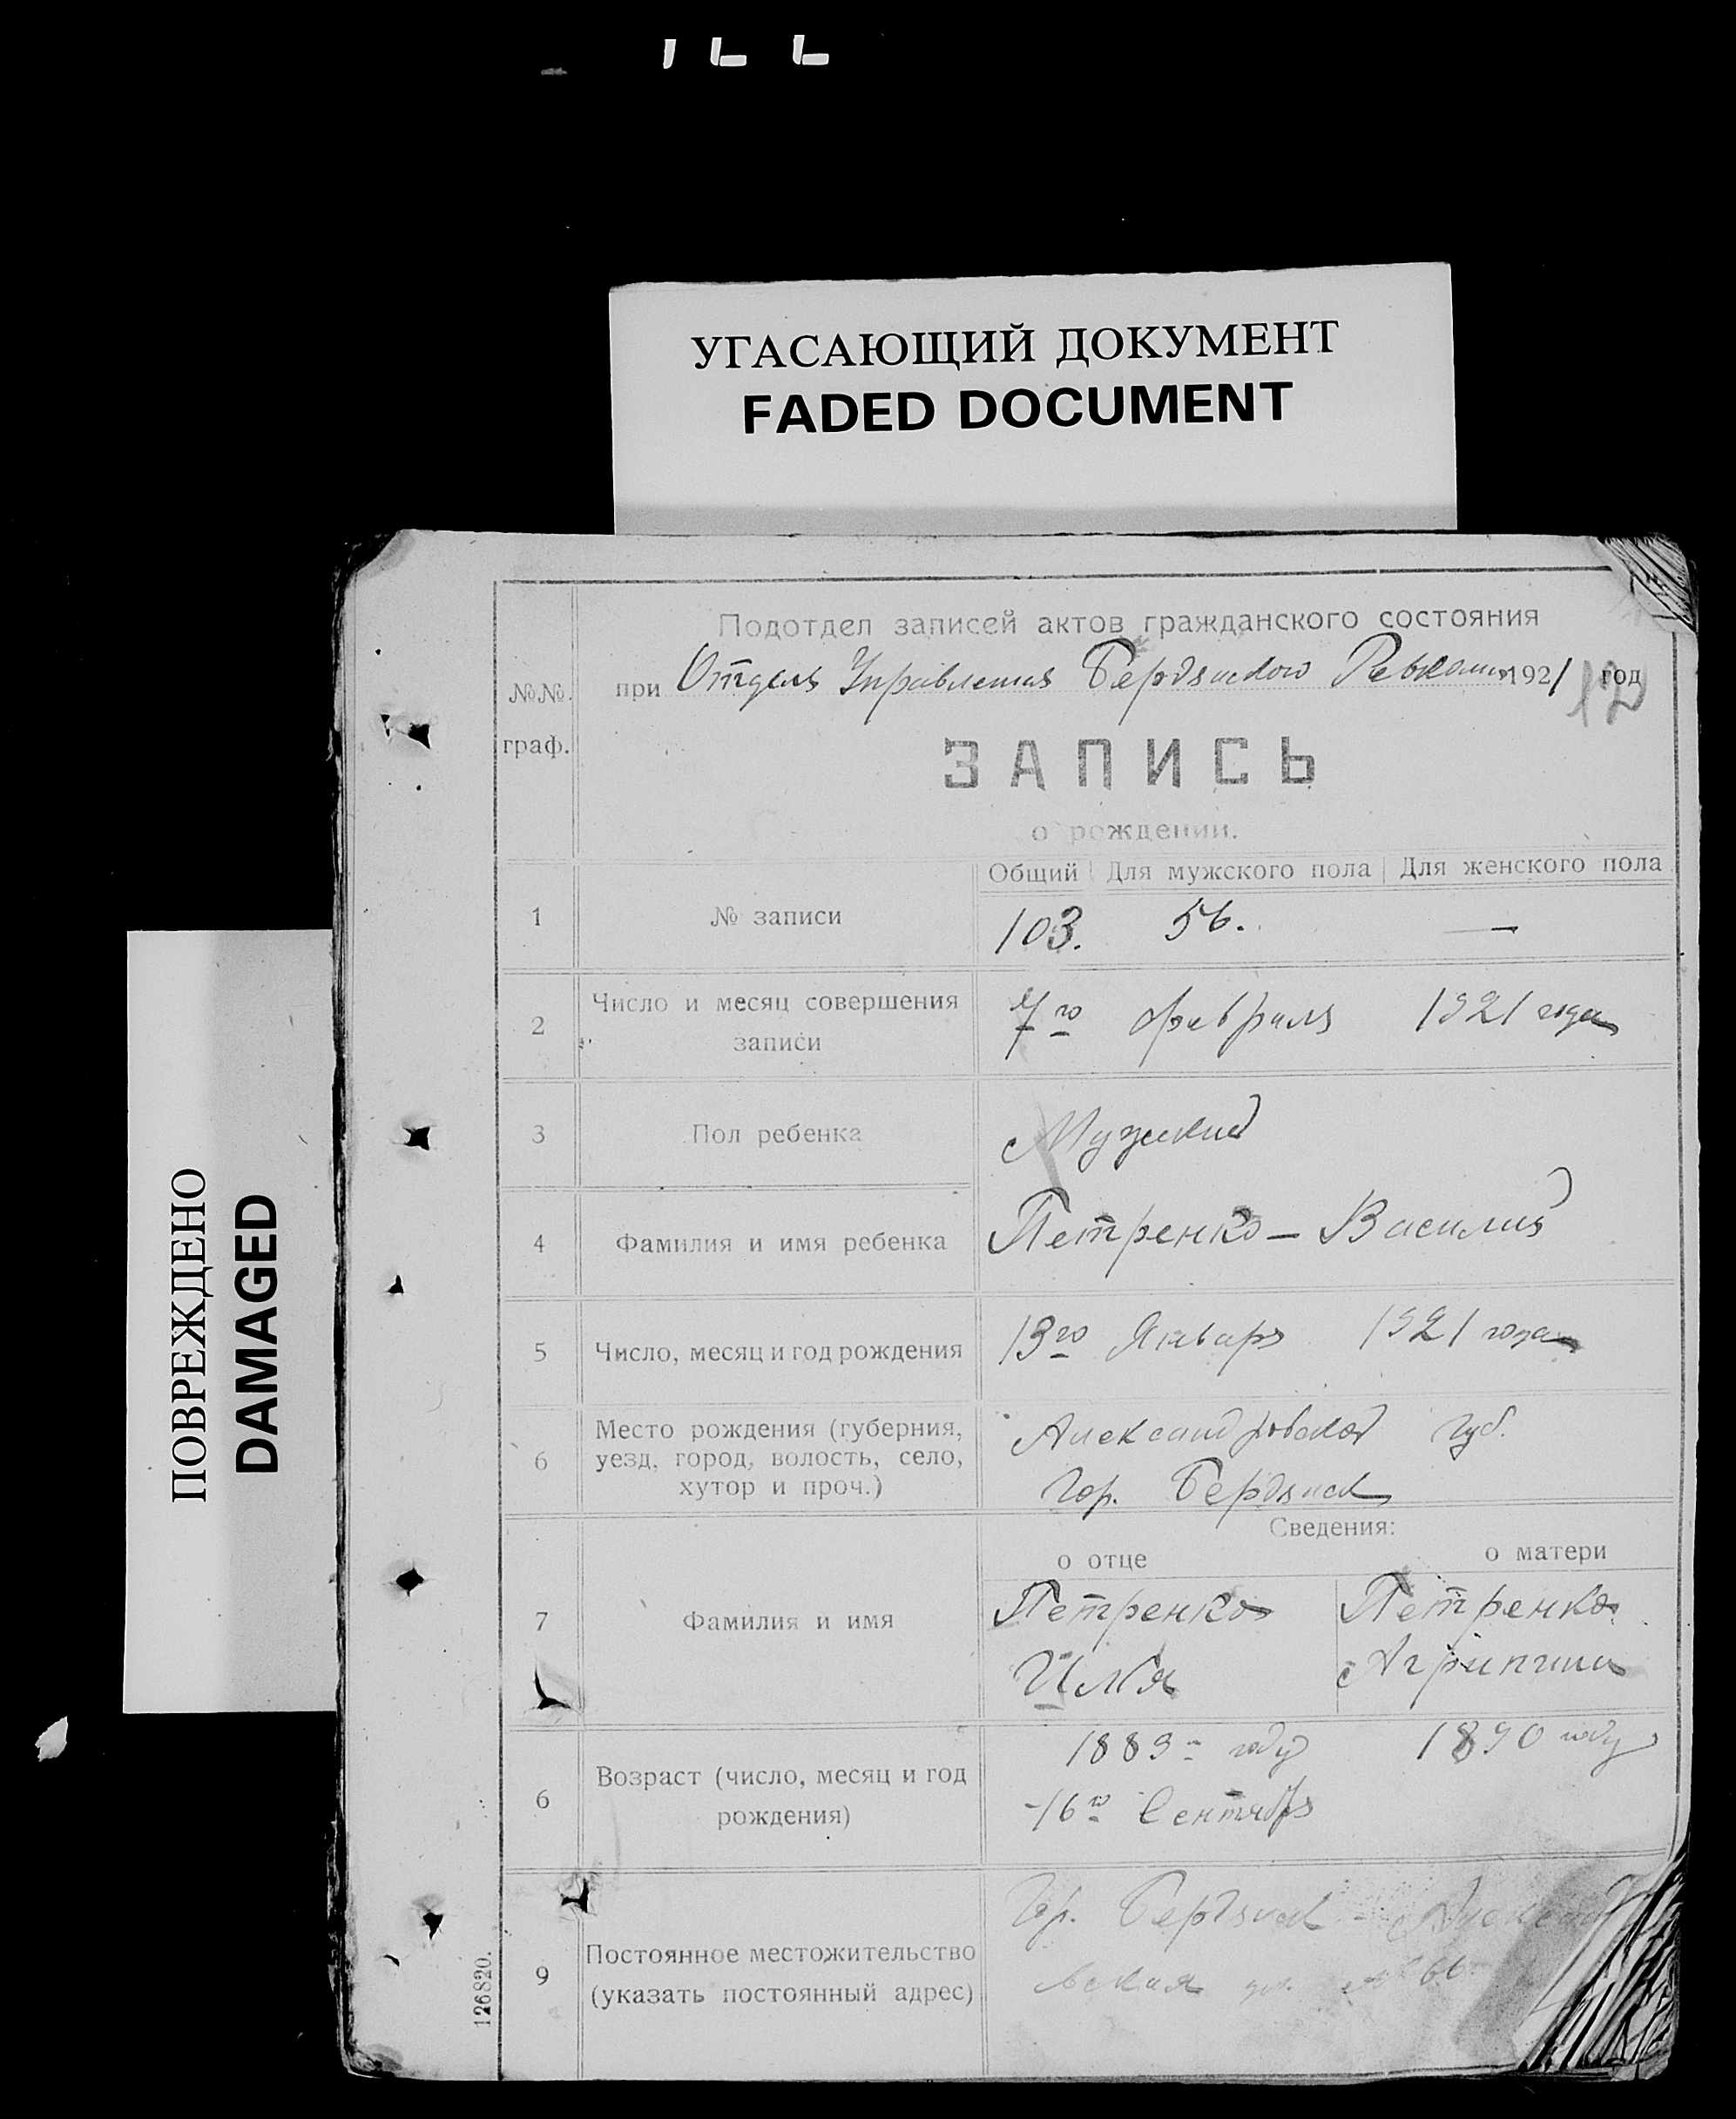 УГАСАЮЩИЙ ДОКУМЕНТ
FADED DOCUMENT
ПОВРЕЖДЕНО
DAMAGED
Подотдел записей актов гражданского состояния
№№ граф.
при Отделѣ Управления Бердянского Ревкома 1921 год
12
ЗАПИСЬ
о рождении.
Общий Для мужского пола Для женского пола
1 № записи 103. 56. —
2 Число и месяц совершения записи 7го февраля 1921 года
3 Пол ребенка Мужской
4 Фамилия и имя ребенка Петренко — Василий
5 Число, месяц и год рождения 13го Января 1921 года
6 Место рождения (губерния, уезд, город, волость, село, хутор и проч.) Александровской губ.
Гор. Бердянск
Сведения:
о отце о матери
7 Фамилия и имя Петренко Петренко
Илья Агрипина
6 Возраст (число, месяц и год рождения) 1889 году 1890 году
16го Сентября
9 Постоянное местожительство (указать постоянный адрес) Гор. Бердянск
вская ул. № 66
126820.